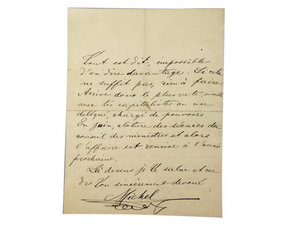 Tout est dit, impossible
d'en dire davantage. Si cela
ne suffit pas, rien à faire.
Arrive donc le plus vite
avec tes capitalistes ou un
délégué, chargé de pouvoirs
En juin, clôture des séances du
conseil des ministres et alors
l'affaire est remise à l'année
prochaine.
Là dessus je te salue et me
dis Ton sincèrement dévoué
Michel